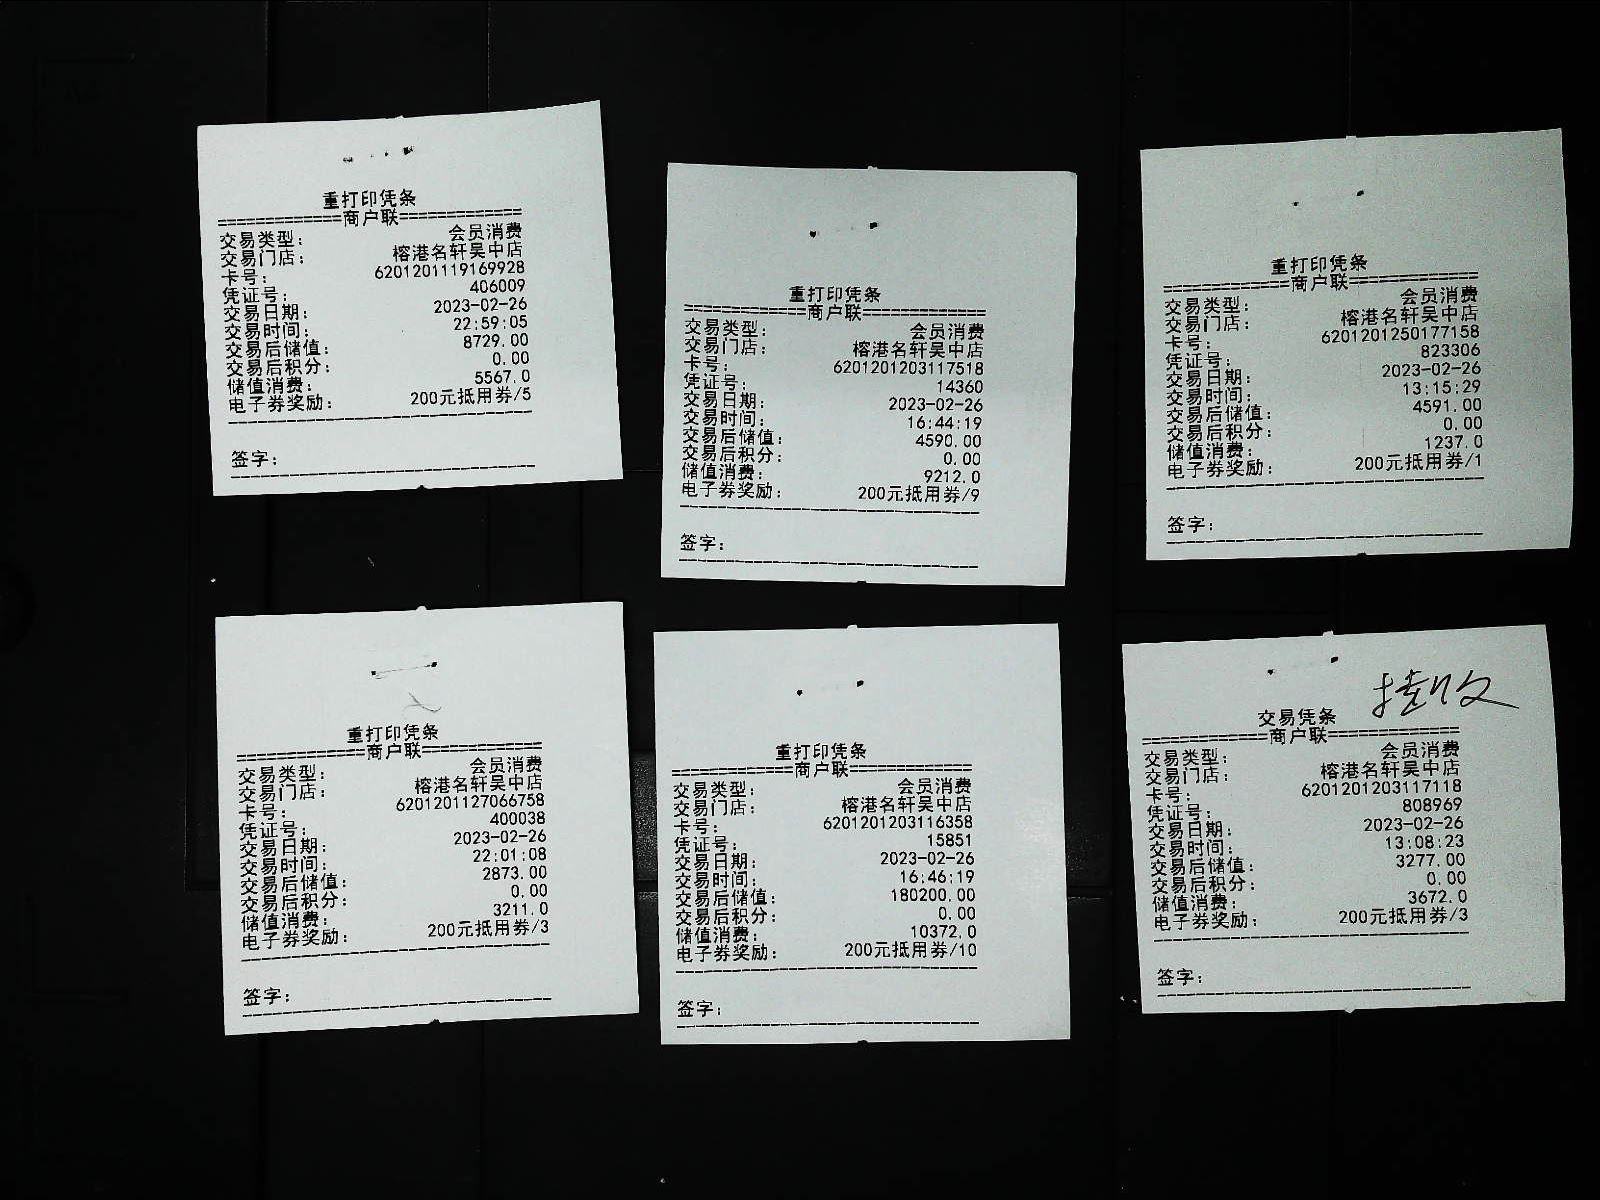 重打印凭条
=============商户联=============
交易类型: 会员消费
交易门店: 榕港名轩吴中店
卡号: 6201201119169928
凭证号: 406009
交易日期: 2023-02-26
交易时间: 22:59:05
交易后储值: 8729.00
交易后积分: 0.00
储值消费: 5567.0
电子券奖励: 200元抵用券/5
签字:
重打印凭条
=============商户联=============
交易类型: 会员消费
交易门店: 榕港名轩吴中店
卡号: 6201201203117518
凭证号: 14360
交易日期: 2023-02-26
交易时间: 16:44:19
交易后储值: 4590.00
交易后积分: 0.00
储值消费: 9212.0
电子券奖励: 200元抵用券/9
签字:
重打印凭条
=============商户联=============
交易类型: 会员消费
交易门店: 榕港名轩吴中店
卡号: 6201201250177158
凭证号: 823306
交易日期: 2023-02-26
交易时间: 13:15:29
交易后储值: 4591.00
交易后积分: 0.00
储值消费: 1237.0
电子券奖励: 200元抵用券/1
签字:
重打印凭条
=============商户联=============
交易类型: 会员消费
交易门店: 榕港名轩吴中店
卡号: 6201201127066758
凭证号: 400038
交易日期: 2023-02-26
交易时间: 22:01:08
交易后储值: 2873.00
交易后积分: 0.00
储值消费: 3211.0
电子券奖励: 200元抵用券/3
签字:
重打印凭条
=============商户联=============
交易类型: 会员消费
交易门店: 榕港名轩吴中店
卡号: 6201201203116358
凭证号: 15851
交易日期: 2023-02-26
交易时间: 16:46:19
交易后储值: 180200.00
交易后积分: 0.00
储值消费: 10372.0
电子券奖励: 200元抵用券/10
签字:
挂收
交易凭条
=============商户联=============
交易类型: 会员消费
交易门店: 榕港名轩吴中店
卡号: 6201201203117118
凭证号: 808969
交易日期: 2023-02-26
交易时间: 13:08:23
交易后储值: 3277.00
交易后积分: 0.00
储值消费: 3672.0
电子券奖励: 200元抵用券/3
签字: